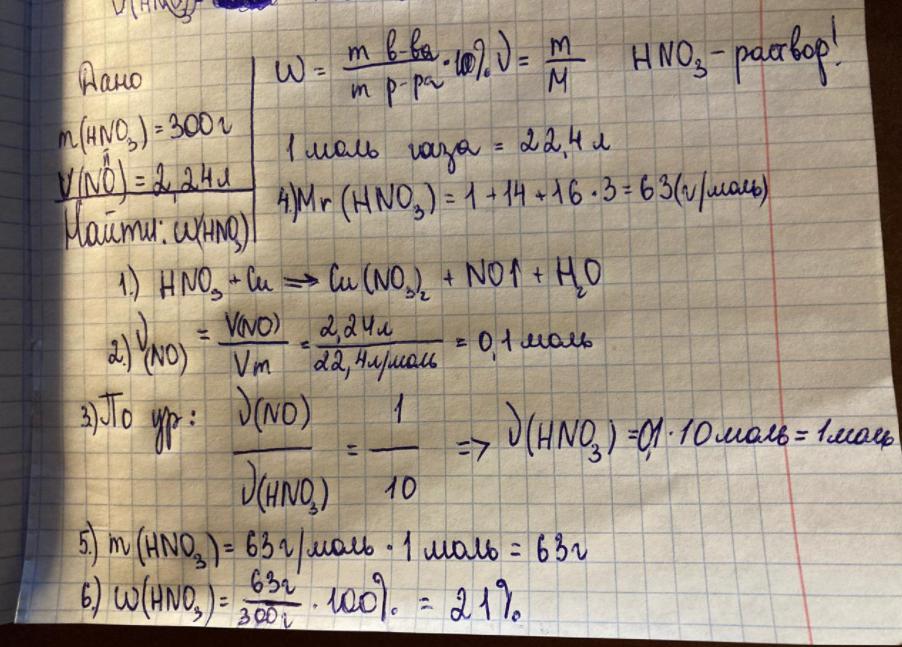 ν(HNO₃)
Дано
m(HNO₃) = 300г
V(NO) = 2,24л
Найти: ω(HNO₃)
ω = m в-ва / m р-ра · 100% ν = m / M HNO₃ – раствор!
1 моль газа = 22,4 л
4) Mr (HNO₃) = 1 + 14 + 16 · 3 = 63 (г/моль)
1.) HNO₃ + Cu ⟹ Cu(NO₃)₂ + NO↑ + H₂O
2.) ν(NO) = V(NO) / Vm = 2,24л / 22,4л/моль = 0,1 моль
3.) По ур: ν(NO) / ν(HNO₃) = 1 / 10 => ν(HNO₃) = 0,1 · 10 моль = 1 моль
5.) m(HNO₃) = 63 г/моль · 1 моль = 63г
6.) ω(HNO₃) = 63г / 300г · 100% = 21%